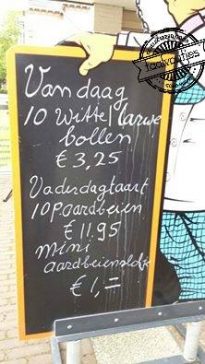 Vandaag
10 witte/larwe
bollen
€ 3,25
Vaderdagtaart
10P aardbeien
€ 11.95
mini
aardbeienslofje
€ 1,=
taalvoutjes